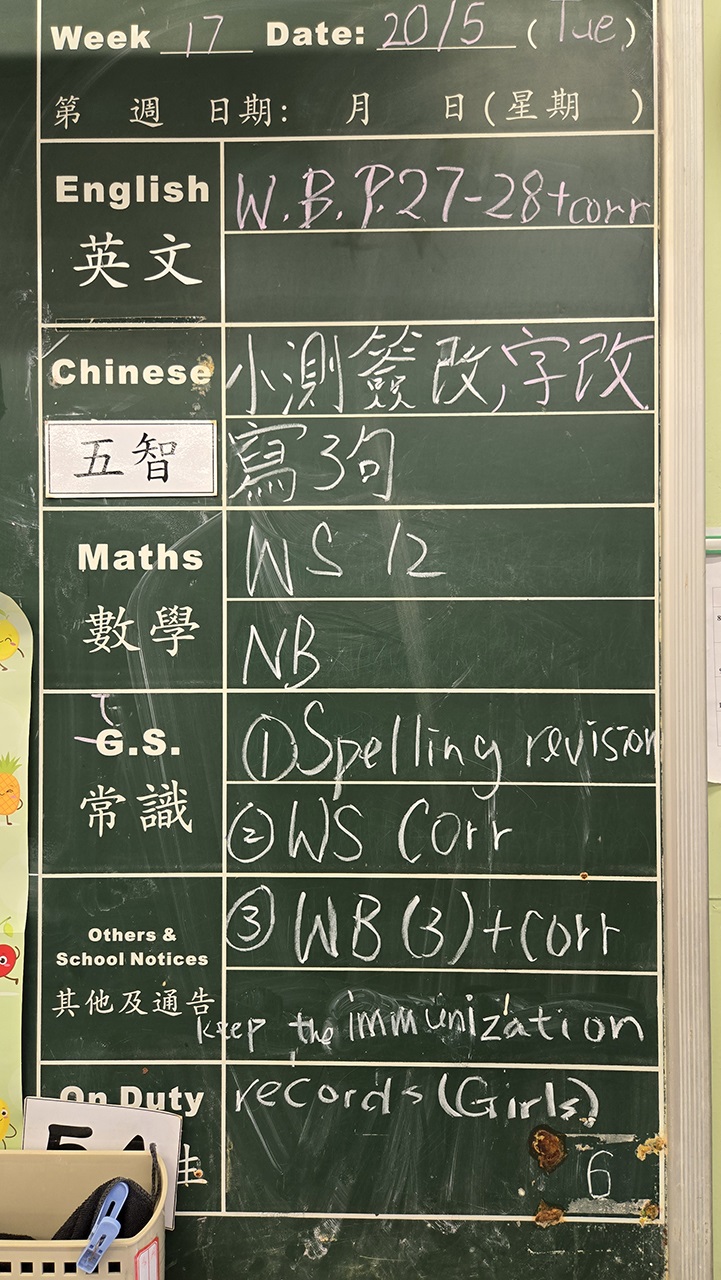 Week 17 Date: 20/5 (Tue.)
第 週 日期: 月 日(星期 )
English W.B. P.27-28+corr
英文
Chinese 小測簽改,字改
五智 寫3句
Maths WS 12
數學 NB
G.S. ①Spelling revision
常識 ②WS Corr
Others & School Notices ③ WB(3)+Corr
其他及通告 keep the immunization
On Duty records(Girls)
生 6